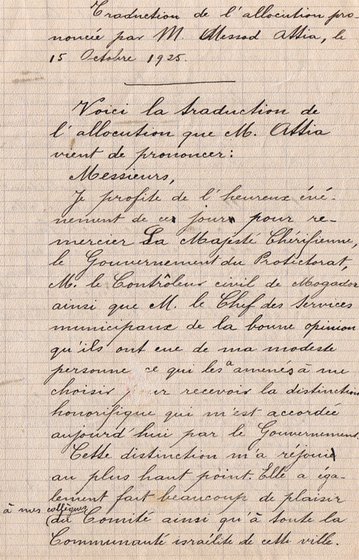 Traduction de l'allocution pro-
noncée par M. Messod Attia, le
15 Octobre 1925.
Voici la traduction de
l'allocution que M. Attia
vient de prononcer:
Messieurs,
Je profite de l'heureux évé-
nement de ces jours pour re-
mercier Sa Majesté Chérifienne,
le Gouvernement du Protectorat,
M. le Contrôleur civil de Mogador
ainsi que M. le Chef des Services
municipaux de la bonne opinion
qu'ils ont eue de ma modeste
personne ce qui les a amenés à me
choisir pour recevoir la distinction
honorifique qui m'est accordée
aujourd'hui par le Gouvernement.
Cette distinction m'a réjoui
au plus haut point. Elle a éga-
lement fait beaucoup de plaisir
à mes collègues du Comité ainsi qu'à toute la
Communauté israélite de cette ville.